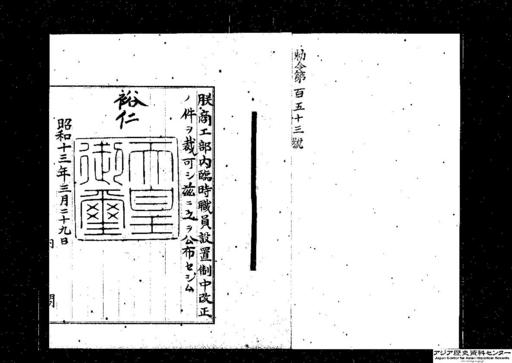 勅令第百五十三號
朕商工部內臨時職員設置制中改正
ノ件ヲ裁可シ茲ニ之ヲ公布セシム
裕仁
天皇御璽
昭和十三年三月二十九日
內
閣
アジア歴史資料センター
Japan Center for Asian Historical Records